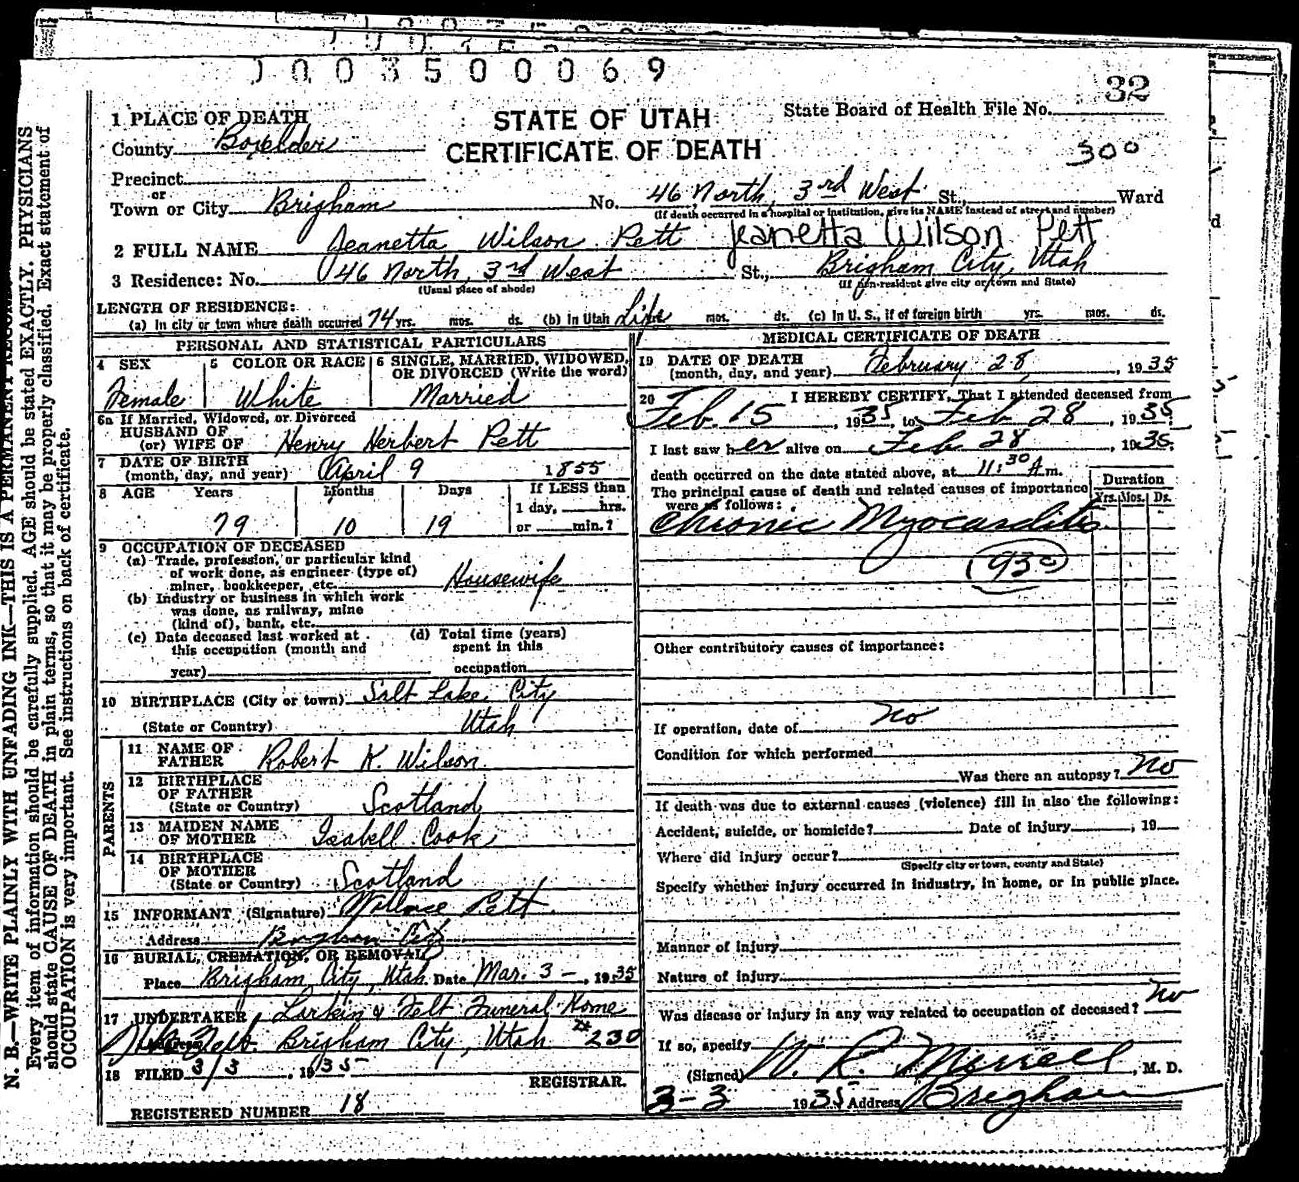 0003500069
32
1 PLACE OF DEATH
STATE OF UTAH
State Board of Health File No.
County Boxelder
CERTIFICATE OF DEATH
300
Precinct
or
Town or City Brigham No. 46 North, 3rd West St., Ward
(If death occurred in a hospital or institution, give its NAME instead of street and number)
2 FULL NAME Jeanetta Wilson Pett Jeanetta Wilson Pett
3 Residence: No. 46 North, 3rd West St., Brigham City, Utah
(Usual place of abode) (If non-resident give city or town and State)
LENGTH OF RESIDENCE:
(a) In city or town where death occurred 74 yrs. mos. ds. (b) In Utah Life mos. ds. (c) In U. S., if of foreign birth yrs. mos. ds.
PERSONAL AND STATISTICAL PARTICULARS
4 SEX 5 COLOR OR RACE 6 SINGLE, MARRIED, WIDOWED, OR DIVORCED (Write the word)
Female White Married
6a If Married, Widowed, or Divorced
HUSBAND OF
(or) WIFE OF Henry Herbert Pett
7 DATE OF BIRTH
(month, day, and year) April 9 1855
8 AGE Years Months Days If LESS than
1 day, hrs.
79 10 19 or min.?
9 OCCUPATION OF DECEASED
(a) Trade, profession, or particular kind
of work done, as engineer (type of)
miner, bookkeeper, etc. Housewife
(b) Industry or business in which work
was done, as railway, mine
(kind of), bank, etc.
(c) Date deceased last worked at
this occupation (month and
year)
(d) Total time (years)
spent in this
occupation
10 BIRTHPLACE (City or town) Salt Lake City
(State or Country) Utah
PARENTS
11 NAME OF
FATHER Robert K. Wilson
12 BIRTHPLACE
OF FATHER
(State or Country) Scotland
13 MAIDEN NAME
OF MOTHER Isabell Cook
14 BIRTHPLACE
OF MOTHER
(State or Country) Scotland
15 INFORMANT (Signature) Wallace Pett
Address Brigham City
16 BURIAL, CREMATION, OR REMOVAL
Place Brigham City, Utah Date Mar. 3 - , 1935
17 UNDERTAKER Larkin & Felt Funeral Home
Brigham City, Utah 230
18 FILED 3/3, 1935
REGISTRAR.
REGISTERED NUMBER 18
MEDICAL CERTIFICATE OF DEATH
19 DATE OF DEATH
(month, day, and year) February 28, 1935
20 I HEREBY CERTIFY, That I attended deceased from
Feb. 15, 1935 to Feb 28, 1935
I last saw her alive on Feb 28, 1935
death occurred on the date stated above, at 11:30 A m.
The principal cause of death and related causes of importance
were as follows:
Duration
Yrs. Mos. Ds.
Chronic Myocarditis
930
Other contributory causes of importance:
If operation, date of no
Condition for which performed
Was there an autopsy? no
If death was due to external causes (violence) fill in also the following:
Accident, suicide, or homicide? Date of injury , 19
Where did injury occur?
(Specify city or town, county and State)
Specify whether injury occurred in industry, in home, or in public place.
Manner of injury
Nature of injury
Was disease or injury in any way related to occupation of deceased? no
If so, specify
(Signed) W. R. Merrell, M. D.
3-3 1935 Address Brigham
N. B.—WRITE PLAINLY WITH UNFADING INK—THIS IS A PERMANENT
Every item of information should be carefully supplied. AGE should be stated EXACTLY. PHYSICIANS
should state CAUSE OF DEATH in plain terms, so that it may be properly classified. Exact statement of
OCCUPATION is very important. See instructions on back of certificate.